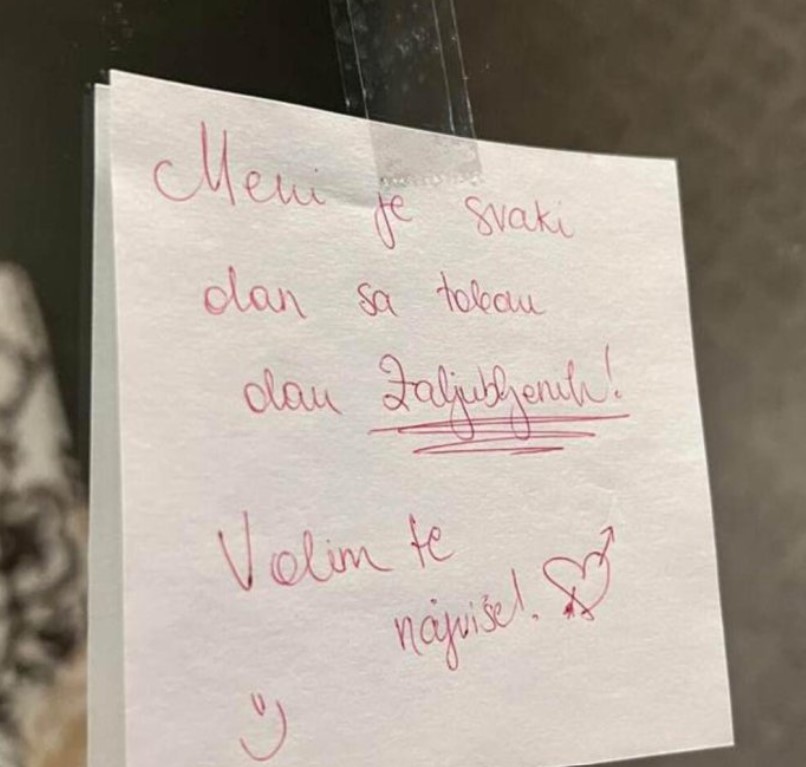 Meni je svaki
dan sa tobom
dan Zaljubljenih!
Volim te
najviše!